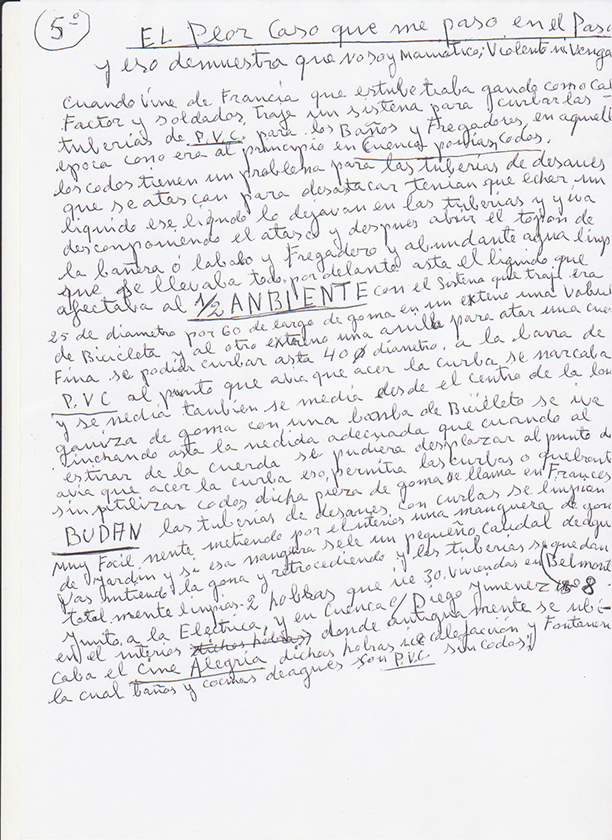 5º
EL Peor Caso que me paso en el Pasa
y eso demuestra que no soy Mamatico; Violento ni Venga
Cuando Vine de Francia que estube traba gando como Cal
Factor y soldados, traje un sistena para curbar las
tuberias de P.V.C. para los Baños y Fregadores, en aquella
epoca cono era al principio en Cuenca ponias Codos,
los codos tienen un problema para las tuberias de desaues
que se atascan para desatacar tenian que echar un
liquido ese liquido lo dejavan en las tuberias y yiva
desconponiendo el atasco y despues abrir el tapon de
la bañera ó lababo y Fregadero y abundante agua limp
que se llevaba todo por delante asta el liquido que
afectaba al 1/2 ANBIENTE con el Sistena que traji era
25 de diametro por 60 de largo de goma en un extreno una Valbul
de Bicicleta y al otro extreno una anilla para atar una cue
Fina. se podia curbar asta 40 Ø diametro. a la barra de
P.V.C al punto que avia que acer la curba se narcaba
y se nedia tanbien se media desde el centro de la
con una bonba de Bicicleta se iva
inchando asta la nedida adecuada que cuando al
estirar de la cuerda se pudiera desplazar al punto de
avia que acer la curba eso permitia las curbas o quebrant
sin utilizar codos dicha pieza de goma se llama en Frances
BUDAN las tuberias de desaues, con curbas se linpian
Muy Facil nente, metiendo por el interios una manguera de gon
de Jardin y si esa manguera sele un pequeño caudal deagu
vas nitiendo la gona y retrocediendo y las tuberias se quedan
total mente linpias. 2 hobras que ice 30. Viviendas en Belmont
Junto a la Electrica, y en Cuenca C/ Diego Jimenez 8
en el interios donde antigua mente se ubi-
caba el Cine Alegria dichas hobras ice calefacion y Fontaner
la cual baños y cocinas deagues son P.V.C sin codos,